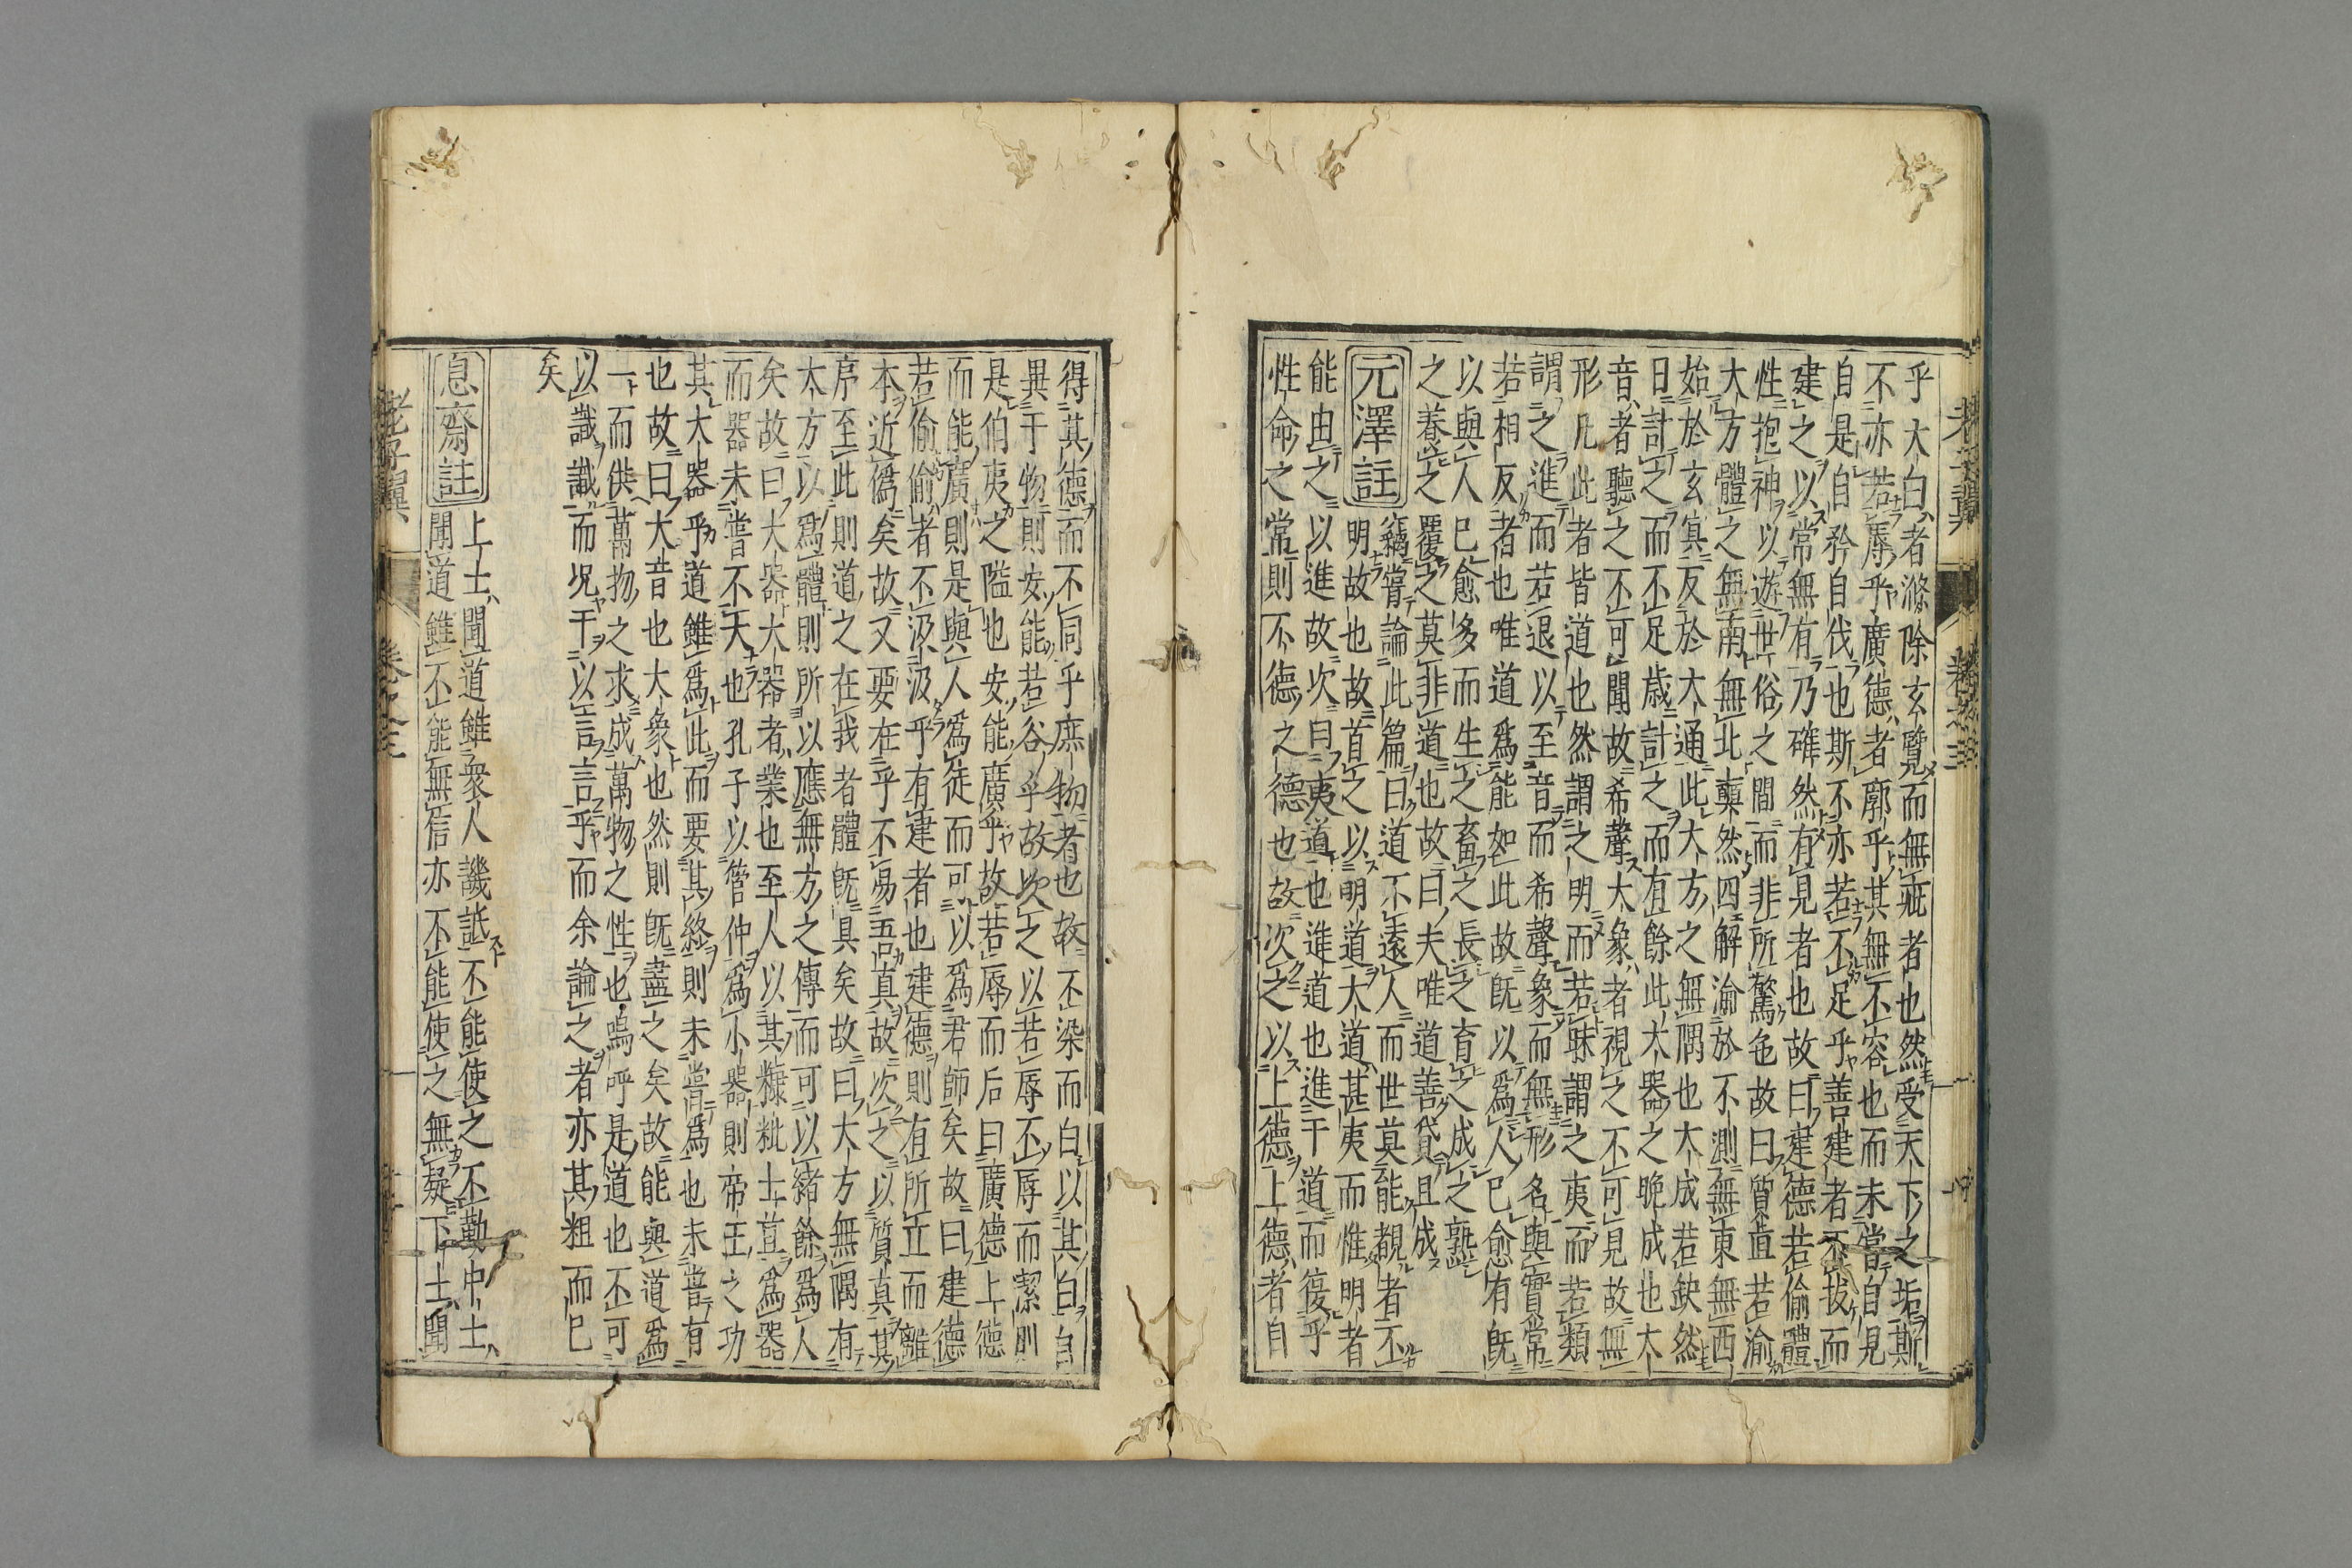 乎大白者滌除玄覽而無疵者也然受天下之垢斯
不亦若辱乎廣德者廓乎其無不容也而未嘗自見
自是自矜自伐也斯不亦若不足乎善建者不拔而
建之以常無有乃確然有見者也故曰建德若偷體
性抱神以遊世俗之間而非所驚色故曰質直若渝
大方體之無南無北奭然四解淪於不測無東無西
始於玄冥反於大通此大方之無隅也大成若缺然
日計之而不足歲計之而有餘此大器之晚成也大
音者聽之不可聞故希聲大象者視之不可見故無
形凡此者皆道也然謂之明而若昧謂之夷而若類
謂之進而若退以至音而希聲象而無形名與實常
若相反者也唯道爲能如此故既以爲人已愈有既
以與人已愈多而生之畜之長之育之成之熟
之養之覆之莫非道也故曰夫唯道善貸且成
元澤註
竊嘗論此篇曰道不遠人而世莫能覩者不
明故也故首之以明道大道甚夷而惟明者
能由之以進故次曰夷道也進道也進于道而復乎
性命之常則不德之德也故次之以上德上德者自
老子翼 卷之三
得其德而不同乎庶物者也故不染而白以其白自
異于物則安能若谷乎故次之以若辱不辱而潔則
是伯夷之隘也安能廣乎故若辱而后曰廣德上德
而能廣則是與人爲徒而可以爲君師矣故曰建德
若偷偷者不汲汲乎有建者也建德則有所立而離
本近僞矣故又要在乎不易吾真故次之以質真其
序至此則道之在我者體既具矣故曰大方無隅有
大方以爲體則所以應無方之傳而可以緒餘爲人
矣故曰大器大器者業也至人以其糠粃土苴爲器
而器未嘗不大也孔子以管仲爲小器則帝王之功
其大器乎道雖爲此而要其終則未嘗爲也未嘗有
也故曰大音也大象也然則既盡之矣故能與道爲
一而供萬物之求成萬物之性也嗚呼是道也不可
以識識而况干以言言乎而余論之者亦其粗而已
矣
息齋註
上士聞道雖衆人譏詆不能使之不勤中士
聞道雖不能無信亦不能使之無疑下士聞
老子翼 卷之三